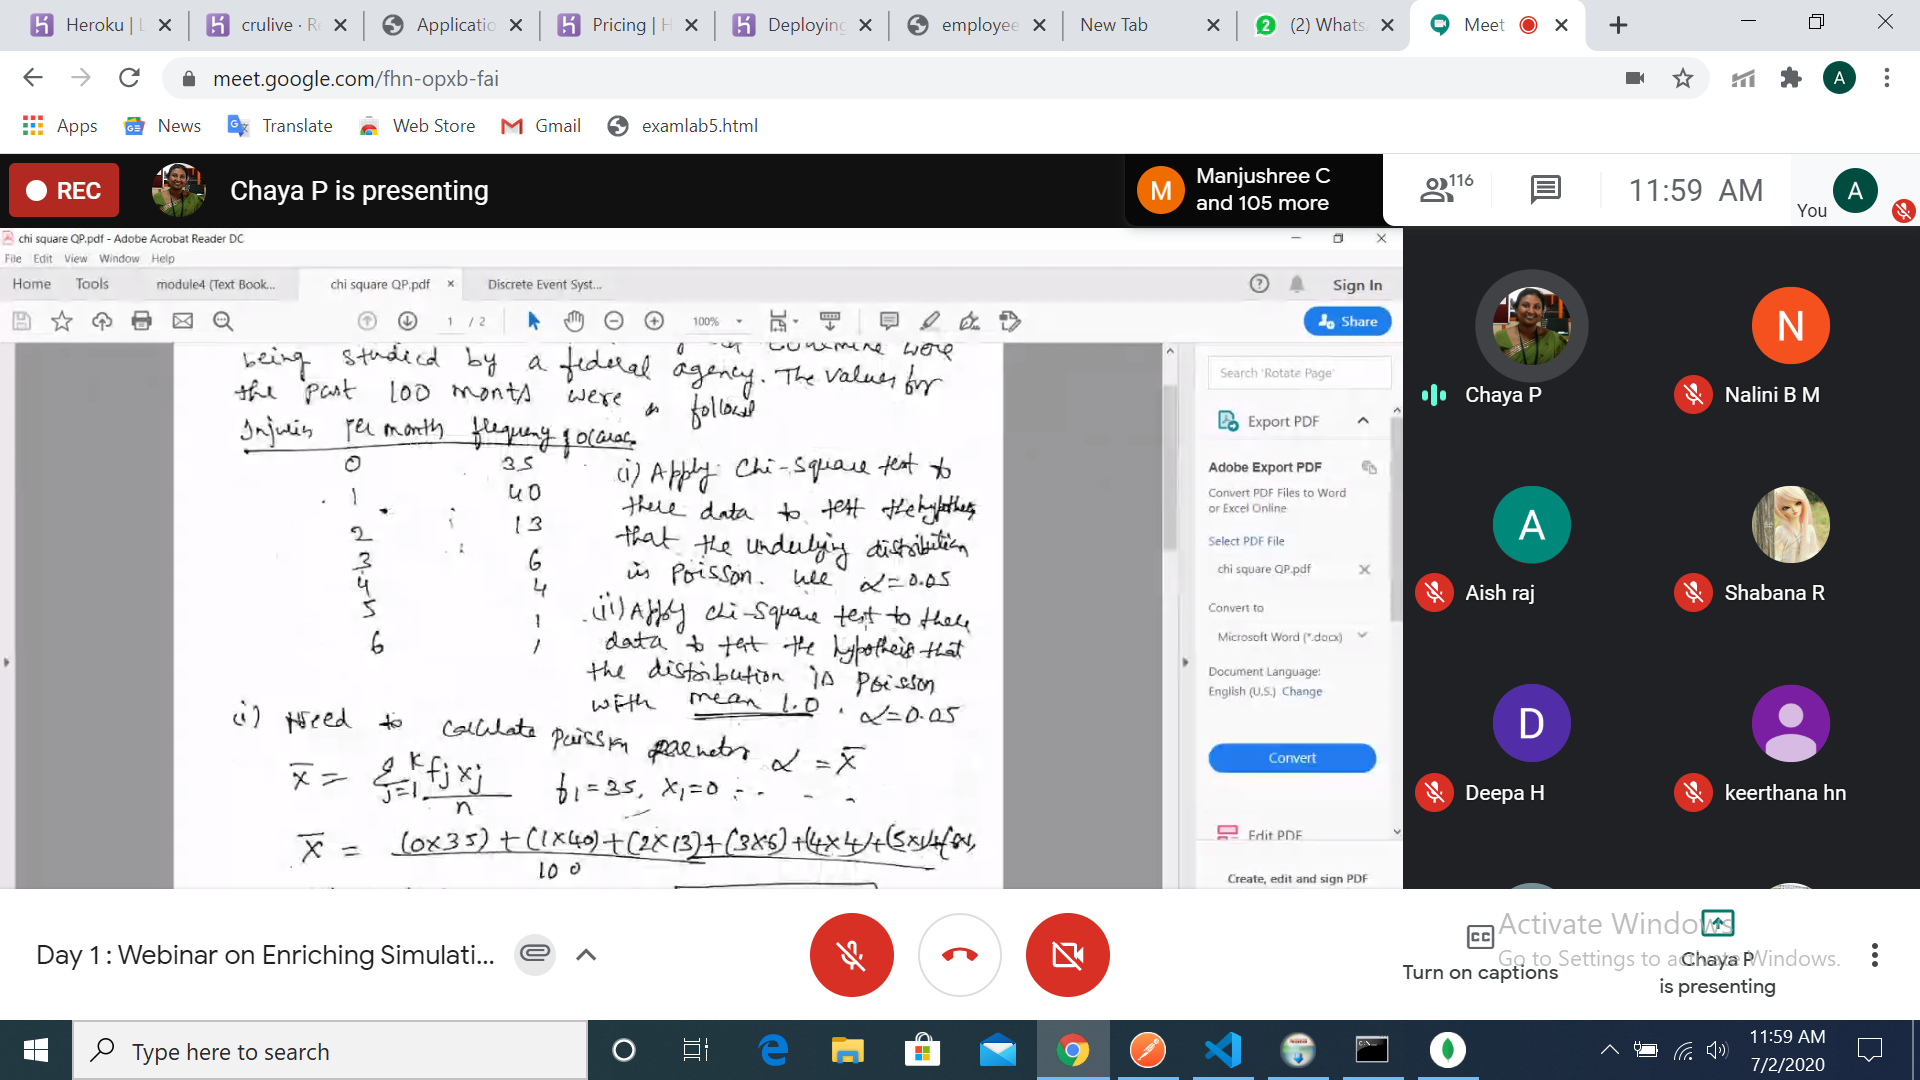 Heroku | L
crulive · Re
Applicatio
Pricing | H
Deploying
employee
New Tab
(2) Whats
Meet
meet.google.com/fhn-opxb-fai
A
Apps
News
Translate
Web Store
Gmail
examlab5.html
REC
Chaya P is presenting
M
Manjushree C
and 105 more
116
11:59 AM
You
A
chi square QP.pdf - Adobe Acrobat Reader DC
File Edit View Window Help
Home Tools module4 (Text Book... chi square QP.pdf Discrete Event Syst... Sign In
1 / 2 100% Share
being studied by a federal agency. The values for
the past 100 months were as follows
Injuries Per month frequency of occurrence
0 35
1 40
2 13
3 6
4 4
5 1
6 1
(i) Apply Chi-Square test to
these data to test the hypothesis
that the underlying distribution
is Poisson. use α=0.05
(ii) Apply chi-Square test to these
data to test the hypothesis that
the distribution is Poisson
with mean 1.0. α=0.05
i) Need to calculate Poisson α = x̄
x̄ = Σ j=1 k fj xj / n f1=35, x1=0
x̄ = (0x35)+(1x40)+(2x13)+(3x6)+(4x4)+(5x1)+
100
Search 'Rotate Page'
Export PDF
Adobe Export PDF
Convert PDF Files to Word
or Excel Online
Select PDF File
chi square QP.pdf
Convert to
Microsoft Word (*.docx)
Document Language:
English (U.S.) Change
Convert
Edit PDF
Create, edit and sign PDF
Chaya P
N
Nalini B M
A
Aish raj
Shabana R
D
Deepa H
keerthana hn
Day 1 : Webinar on Enriching Simulati...
CC
Turn on captions
Chaya P
is presenting
Activate Windows
Go to Settings to activate Windows.
Type here to search
11:59 AM
7/2/2020